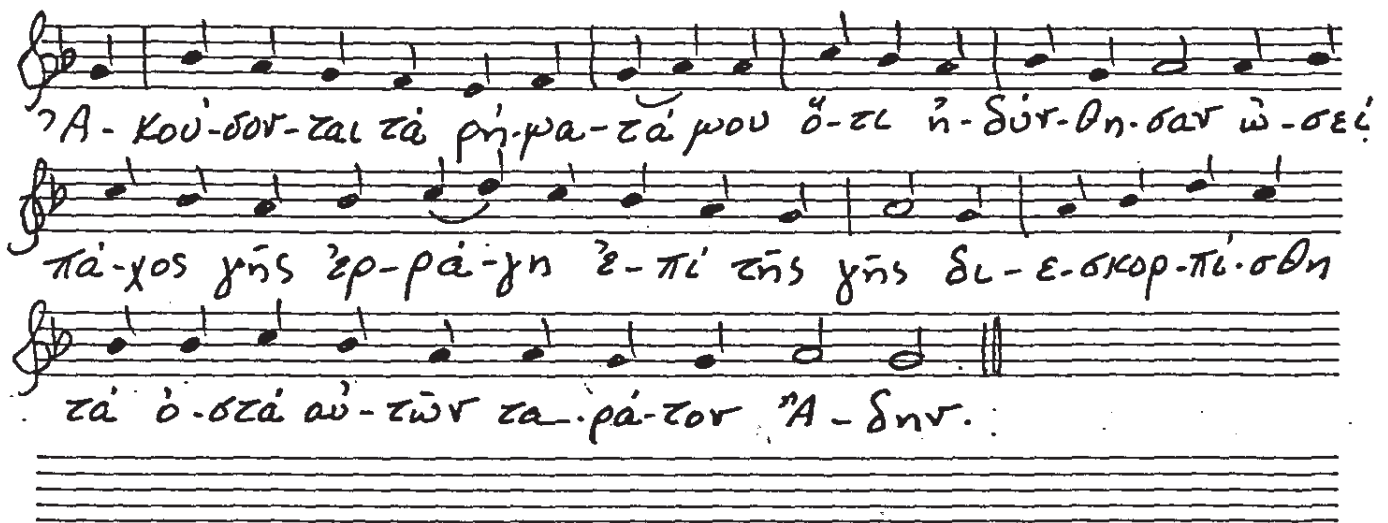 Ἀ-κού-σον-ται τά ρή-μα-τά μου ὅ-τι ἡ-δύν-θη-σαν ὡ-σεί
πά-χος γῆς ἐρ-ρά-γη ἐ-πί τῆς γῆς δι-ε-σκορ-πί-σθη
τά ὀ-στά αὐ-τῶν τα-ρά-τον Ἅ-δην.